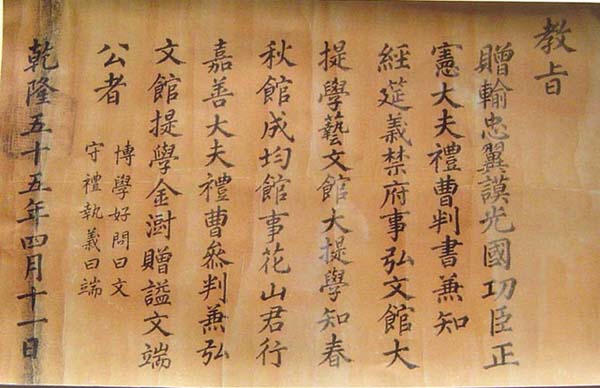 教旨
贈輸忠翼謨光國功臣正
憲大夫禮曹判書兼知
經筵義禁府事弘文館大
提學藝文館大提學知春
秋館成均館事花山君行
嘉善大夫禮曹叅判兼弘
文館提學金澍贈謚文端
公者
博學好問曰文
守禮執義曰端
乾隆五十五年四月十一日